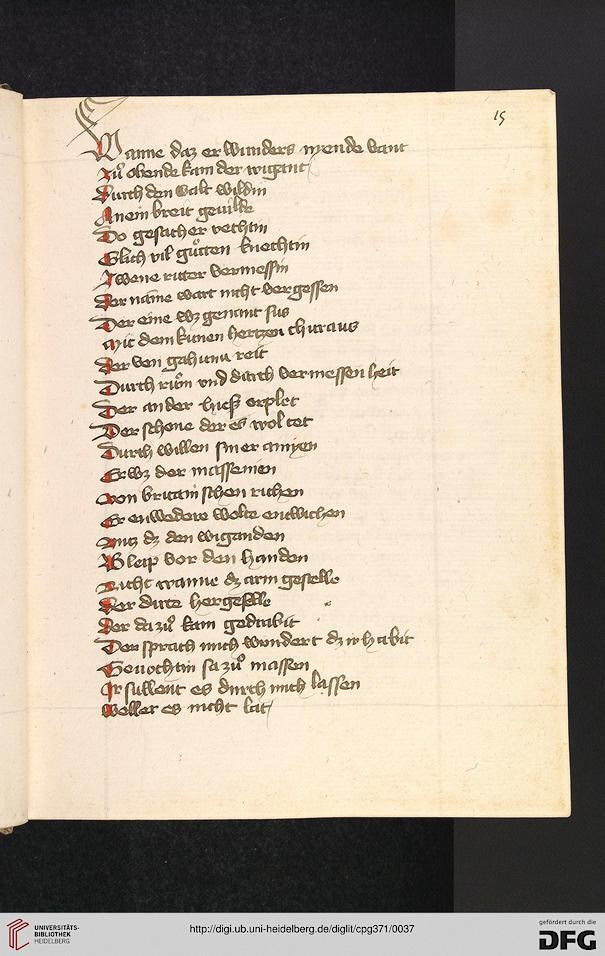 15
Wanne daz er wunders nyende vant
Zů obende kam der wigant
Durch den walt wildin
An ein breit gevilde
Do gesach er vechtin
Glich vil gůtten knechtin
Zwene ritter vermessin
Der name wart nicht vergessen
Der eine wz genant sus
Mit dem kunen hertzen
Der von reit
Durch rům vnd durch vermessen heit
Der ander hiess orplet
Der schone der es wol tet
Durch willen siner amyen
Er wz der massenien
Von britanischen richen
Er enwedere wolte entwichen
Untz dz den wiganden
Bleip vor den handen
Nicht wanne dz arm gestelle
Der dirte hergeselle
Der da zů kam gedrabit
Der sprach mich wundert dz ir habit
Gevochtin sa zů massen
Ir sullent es durch mich lassen
Weller es nicht lat
UNIVERSITÄTS-
BIBLIOTHEK
HEIDELBERG
http://digi.ub.uni-heidelberg.de/diglit/cpg371/0037
gefördert durch die
DFG